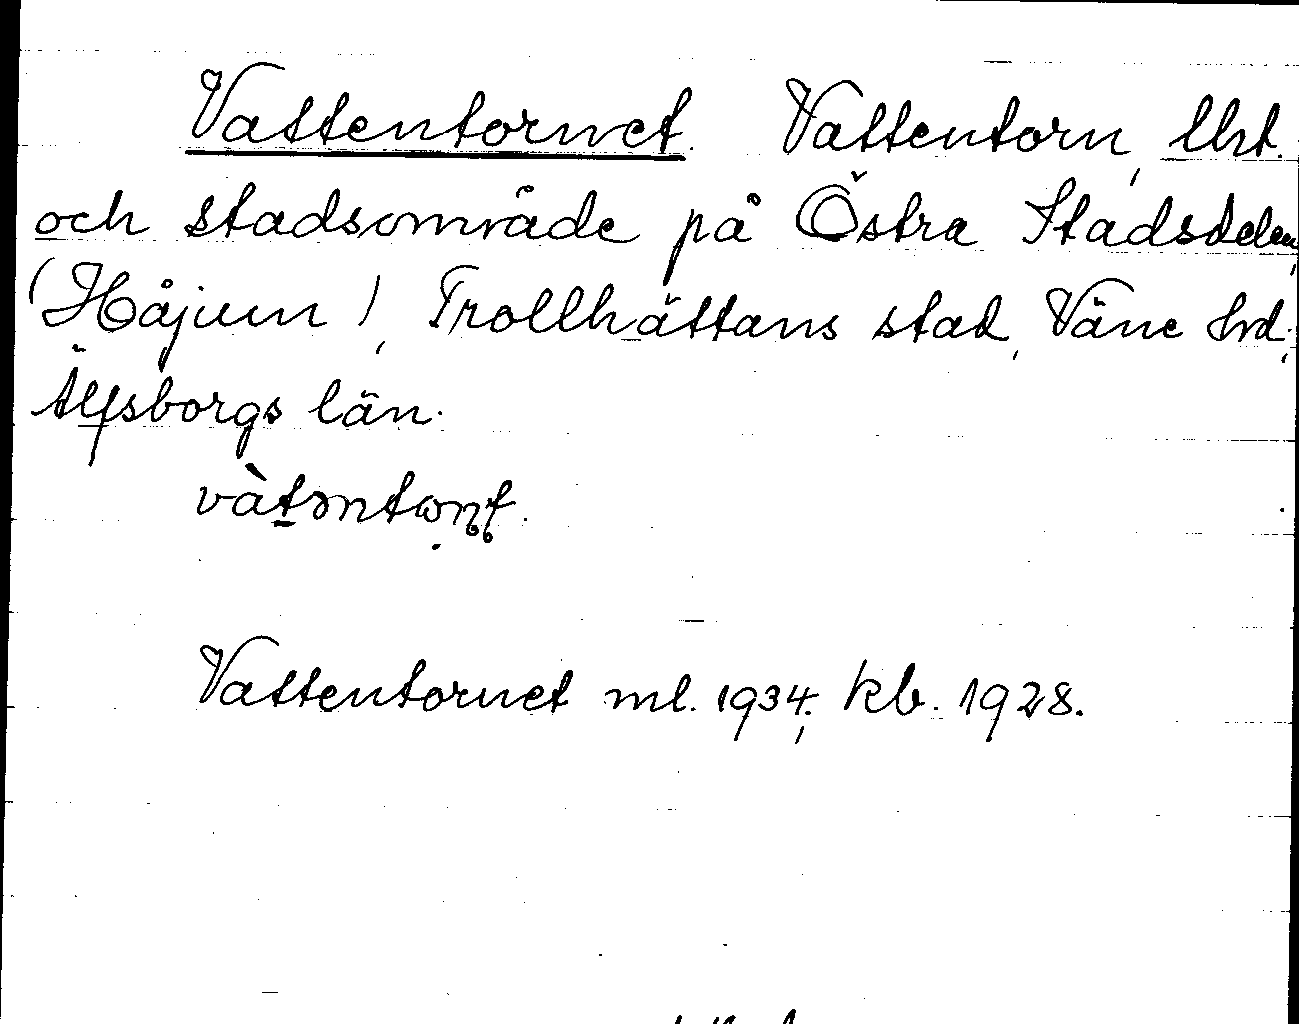 Vattentornet. Vattentorn, lht.
och stadsområde på Östra Stadsdelen,
(Håjum), Trollhättans stad, Väne hrd.,
Älfsborgs län.
Vattentornet ml. 1934.; kb. 1928.